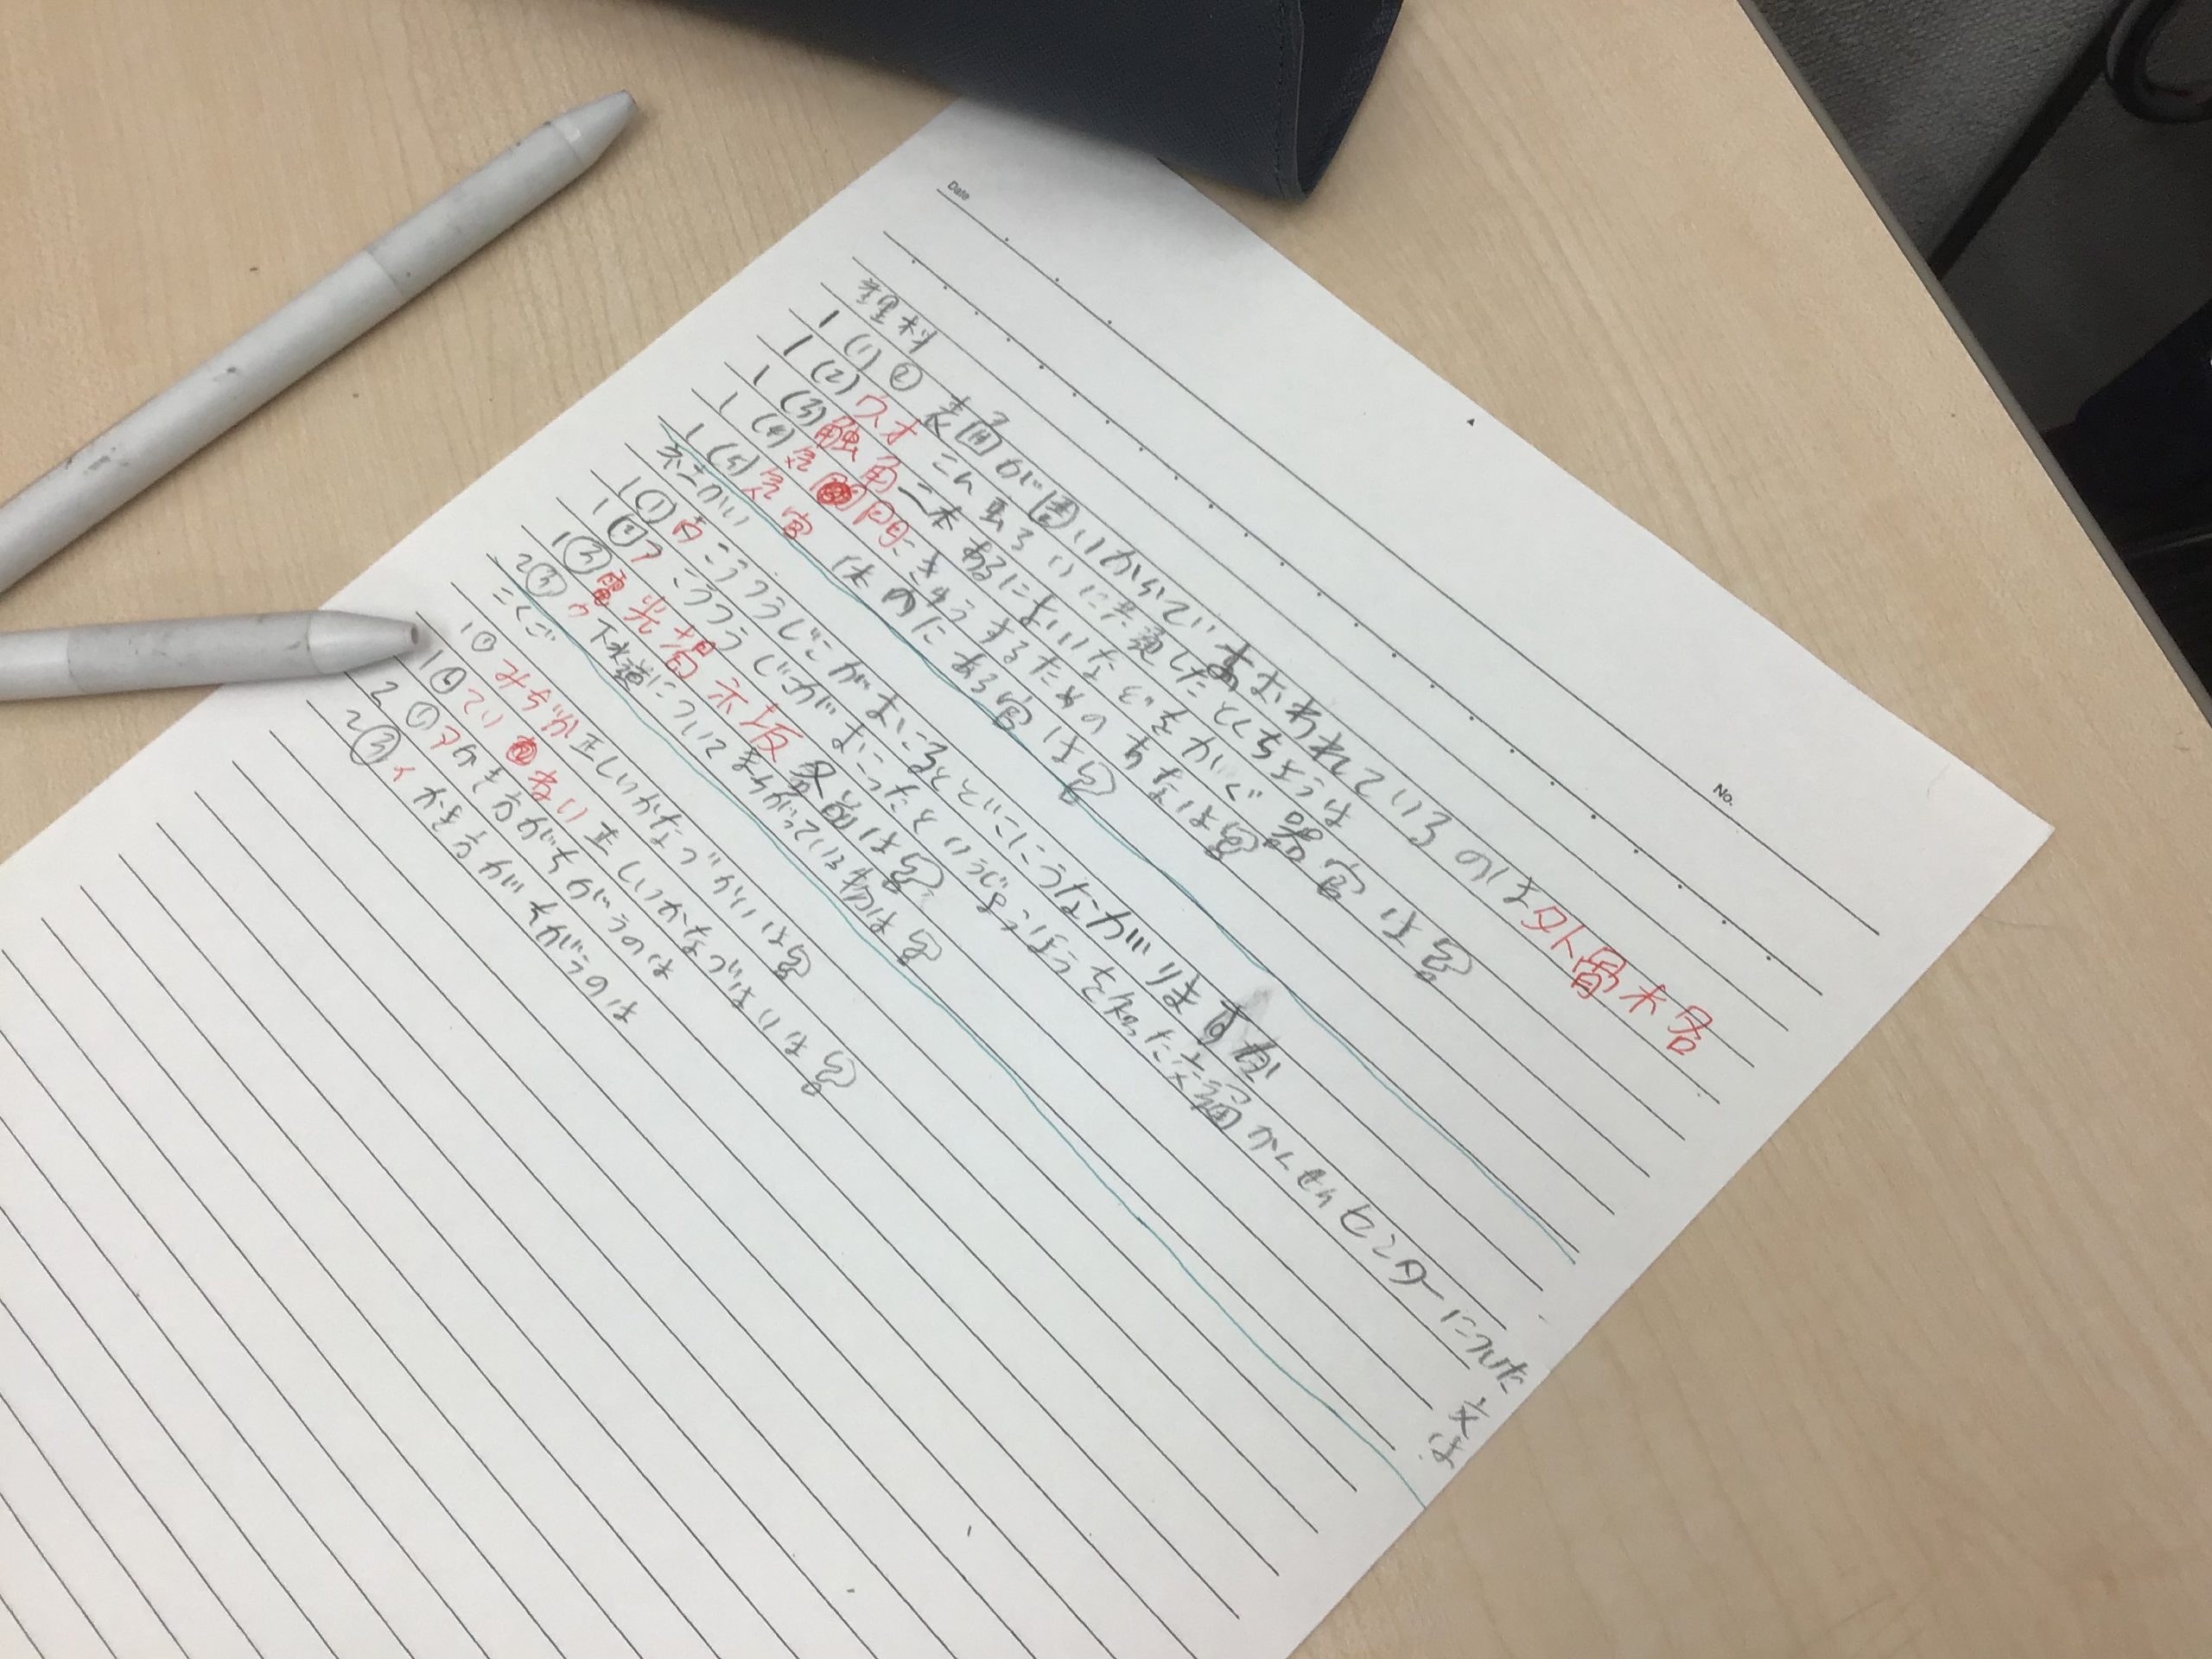 Date
No.
理科
1 (1) ② 表面が固いからでおおわれているのは外骨格
1 (2) ウオ こん虫るいに共通したとくちょうは
1 (3) 触角 二本あるにおいなどをかぐ器官は
1 (4) 気門 こきゅうするためのあなは
1 (5) 気官 体の内にある官は
社かい
1 ① こうつうじこがおこるとどこにつながりますか
1 ② ア こうつうじこがおこったというじょうほうを知った交通かんせいセンターにつた 文は
1 ③ 電光掲示板 名前は
2 ③ ウ 下水道についてまちがっている物は
こくご
1 ① みぢか 正しいかなづかいは
1 ④ ていねい 正しいかなづかいは
2 ① ア かき方がちがうのは
2 ③ イ かき方がちがうのは